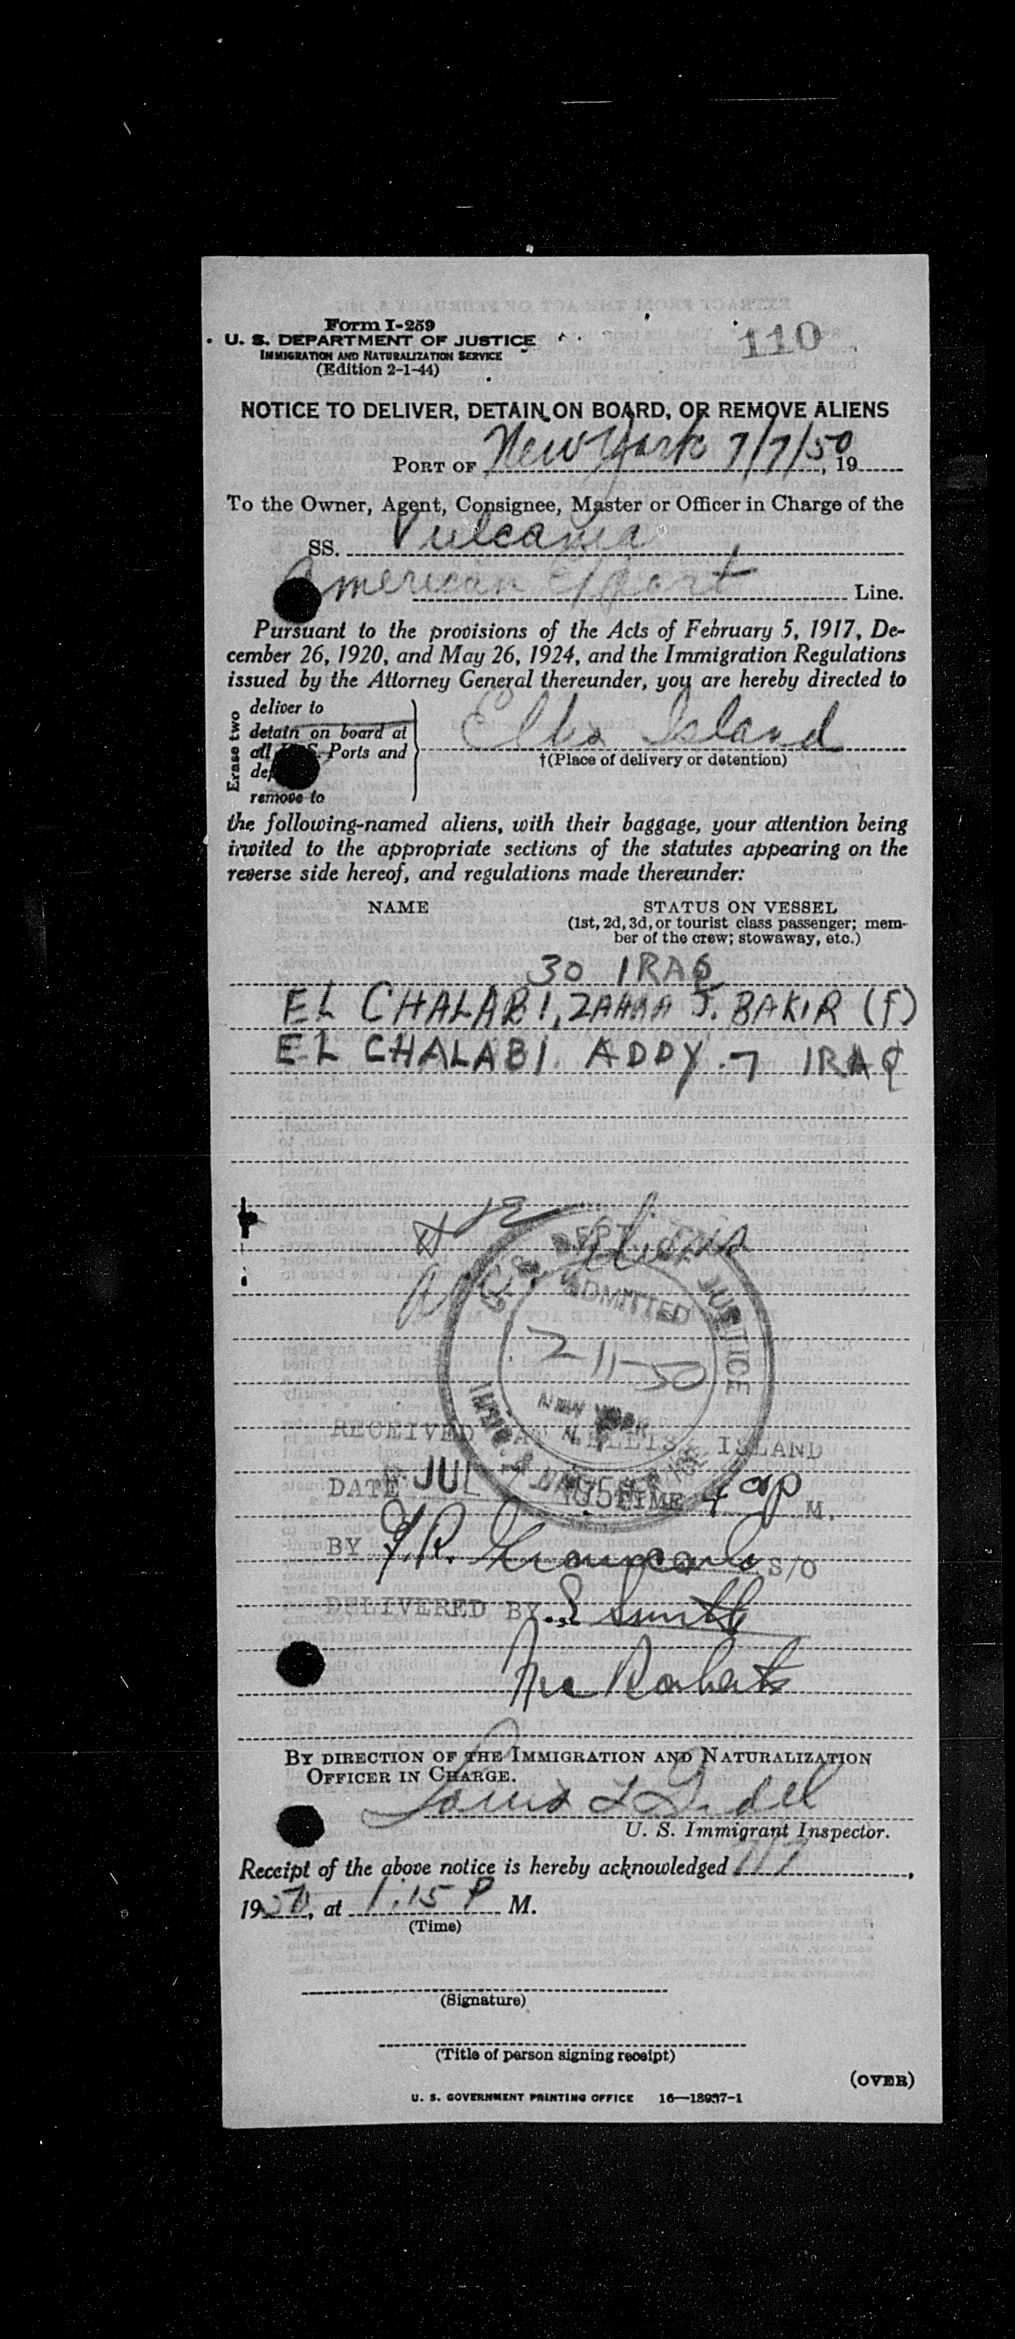 Form I-259
U. S. DEPARTMENT OF JUSTICE
IMMIGRATION AND NATURALIZATION SERVICE
(Edition 2-1-44)
110
NOTICE TO DELIVER, DETAIN ON BOARD, OR REMOVE ALIENS
PORT OF New York 7/7/50, 19
To the Owner, Agent, Consignee, Master or Officer in Charge of the
SS. Vulcania
American Export Line.
Pursuant to the provisions of the Acts of February 5, 1917, De-
cember 26, 1920, and May 26, 1924, and the Immigration Regulations
issued by the Attorney General thereunder, you are hereby directed to
Erase two
deliver to
detain on board at
all U.S. Ports and
remove to
Ellis Island
†(Place of delivery or detention)
the following-named aliens, with their baggage, your attention being
invited to the appropriate sections of the statutes appearing on the
reverse side hereof, and regulations made thereunder:
NAME
STATUS ON VESSEL
(1st, 2d, 3d, or tourist class passenger; mem-
ber of the crew; stowaway, etc.)
30 IRAQ
EL CHALABI, ZAHRA J. BAKIR (f)
EL CHALABI. ADDY. 7 IRAQ
U.S. DEPT. JUSTICE
ADMITTED
7-11-50
NEW YORK
N. Y.
RECEIVED AT ELLIS ISLAND
DATE JUL 7 1950 TIME 4 P M.
BY S/O
DELIVERED BY S Smith
BY DIRECTION OF THE IMMIGRATION AND NATURALIZATION
OFFICER IN CHARGE.
U. S. Immigrant Inspector.
Receipt of the above notice is hereby acknowledged 7/7,
1950, at 1:15 P M.
(Time)
(Signature)
(Title of person signing receipt)
(OVER)
U. S. GOVERNMENT PRINTING OFFICE 16—18937-1